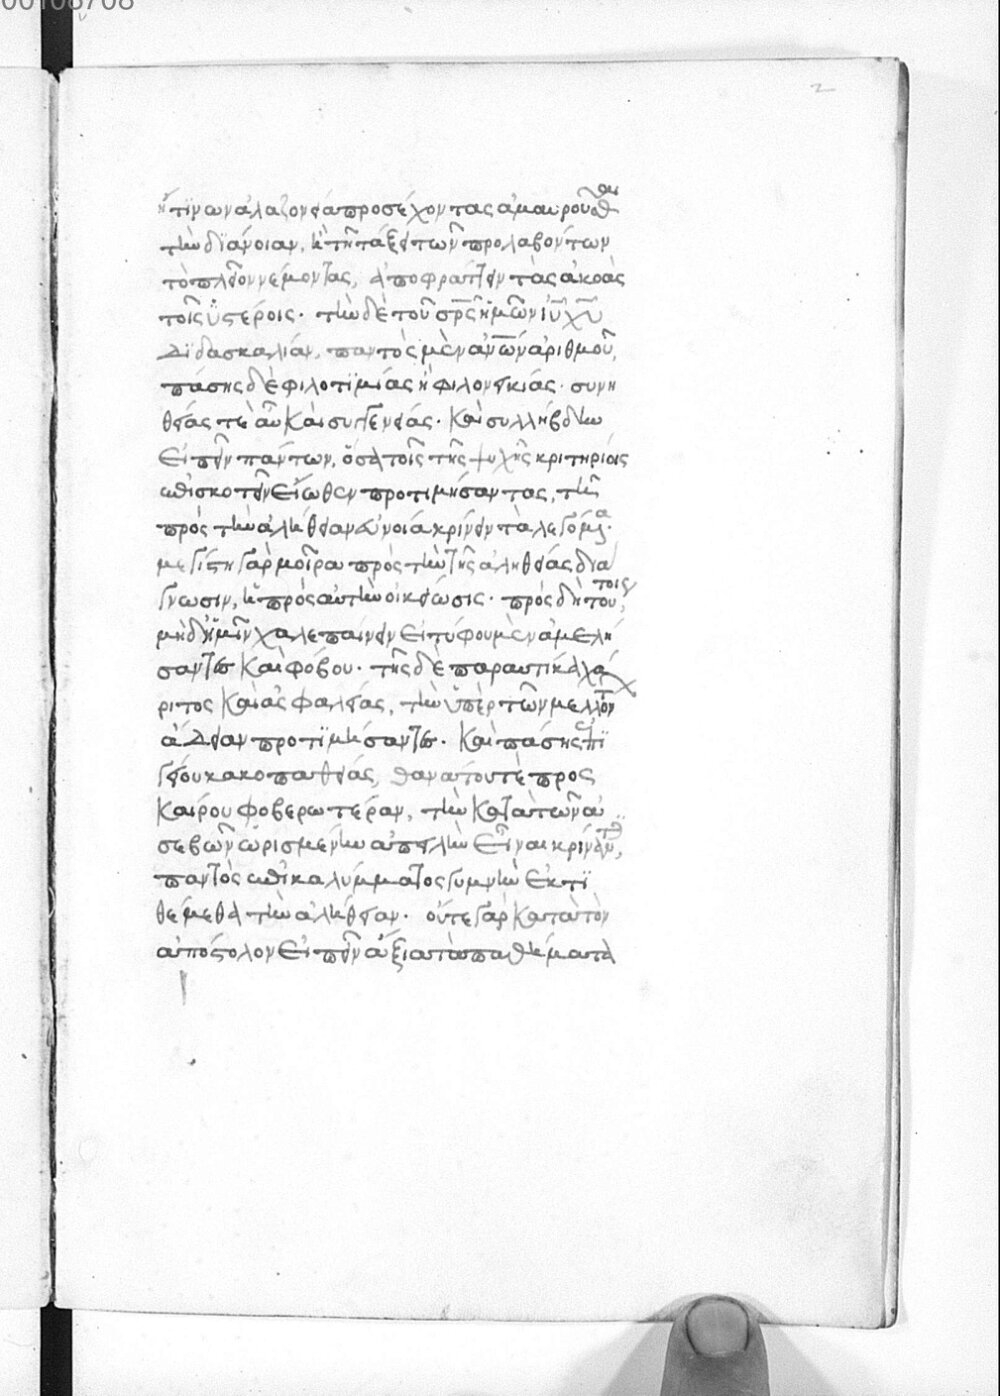 00108708
2
ἤ τινων ἀλαζονεία προσέχοντας ἀμαυροῦσθαι
τὴν διάνοιαν, καὶ τῇ τάξει τῶν προλαβόντων
τὸ πλέον νέμοντας, ἀποφράττειν τὰς ἀκοὰς
τοῖς ὑστέροις. τὴν δὲ τοῦ σρς ἡμῶν ιυ χυ
διδασκαλίαν, παντὸς μὲν ανων ἀριθμοῦ,
πάσης δὲ φιλοτιμίας ἢ φιλονεικίας. συνη
θείας τὲ αὖ καὶ συγγενείας. καὶ συλλήβδην
εἰπεῖν πάντων, ὅσα τοῖς τῆς ψυχῆς κριτηρίοις
ἐπισκοτεῖν εἴωθεν προτιμήσαντας, τῇ
πρὸς τὴν ἀλήθειαν εὐνοία κρίνειν τὰ λεγόμενα.
μεγίστη γὰρ μοῖρα πρὸς τὴν τῆς ἀληθείας διά
γνωσιν, ἡ πρὸς αὐτὴν οἰκείωσις. πρὸς δὴ τούτοις,
μὴ δ' ἡμῖν χαλεπαίνειν εἰ τύφου μὲν ἀμελή
σαντες καὶ φόβου. τῆς δὲ παραυτίκα χά
ριτος καὶ ἀσφαλείας, τὴν ὑπὲρ τῶν μελλόντων
ἄδειαν προτιμήσαντες. καὶ πάσης ἐπι
γείου κακοπαθείας, θανάτου τὲ προς
καίρου φοβερωτέραν, τὴν κατὰ τῶν ἀ
σεβῶν ὡρισμένην ἀπειλὴν εἶναι κρίναντες,
παντὸς ἐπικαλύμματος γυμνὴν ἐκτι
θέμεθα τὴν ἀλήθειαν. οὔτε γὰρ κατὰ τὸν
ἀπόστολον εἰπεῖν ἄξια τὰ παθήματα